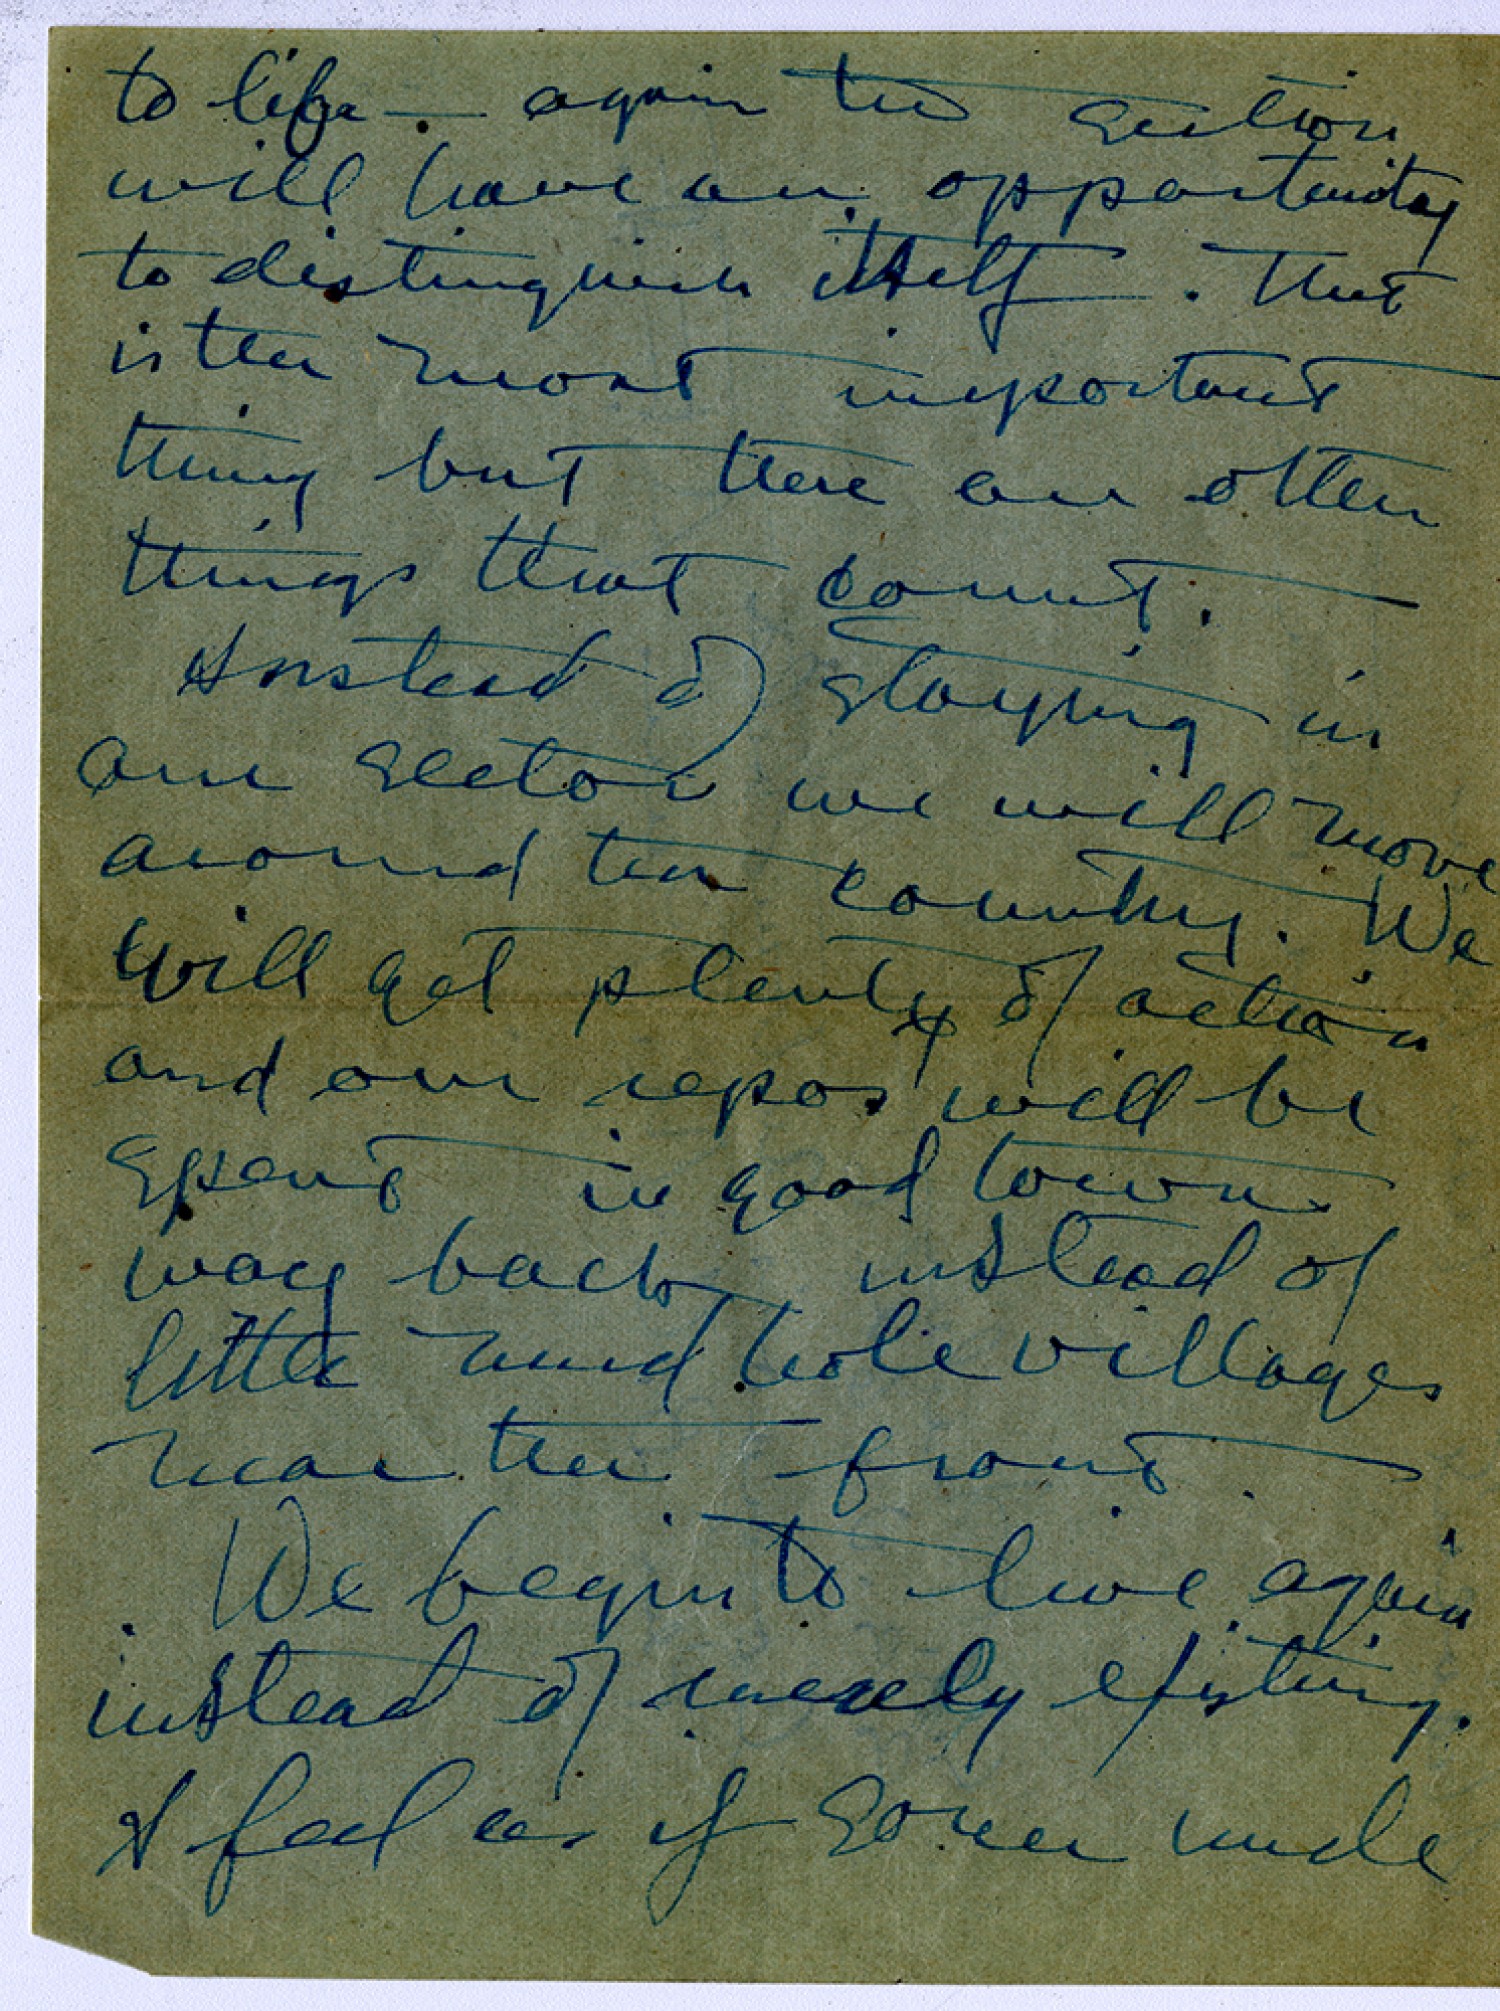 to life — again the section
will have an opportunity
to distinguish itself. That
is the most important
thing but there are other
things that count.
Instead of staying in
one sector we will move
around the country. We
will get plenty of action
and our repos will be
spent in good towns
way back instead of
little mud hole villages
near the front
We begin to live again
instead of merely existing.
I feel as if some uncle